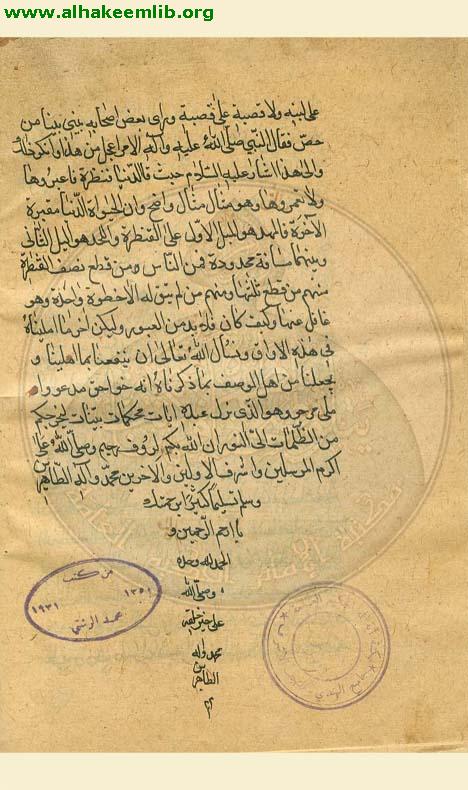 www.alhakeemlib.org
على لبنة ولا قصبة على قصبة وراى بعض اصحابه يبنى بيتا من
جص فقال النبي صلى الله عليه وآله الامر اعجل من هذا وانكر ذلك
والى هذا اشار عليه السلام حيث قال الدنيا قنطرة فاعبروها
ولا تعمروها وهو مثال واضح وان الحيواة الدنيا مقبرة
الآخرة فالمهد هو الميل الاول على القنطرة واللحد هو الميل الثانى
وبينهما مسافة محدودة فمن الناس ومن قطع نصف القنطرة
منهم من قطع ثلثها ومنهم من لم يبق له الا خطوة واحدة وهو
غافل عنها وكيف كان فلا بد من العبور وليكن آخر ما امليناه
فى هذه الاوراق ونسأل الله تعالى ان ينفعنا بما املينا و
يجعلنا من اهل الوصف بما ذكرناه انه هو احق مدعو وا
ملى مرجو وهو الذى نزل عبده ايات محكمات بينات ليخرجكم
من الظلمات الى النور ان الله بكم لرؤف رحيم وصلى الله على
اكرم المرسلين واشرف الاولين والاخرين محمد وآله الطاهرين
وسلم تسليما كثيرا برحمتك
يا ارحم الراحمين و
الحمد لله وحده
وصلى الله
على خير خلقه
محمد واله
الطاهرين
من كتب
١٣٥١
١٩٣١
محمد الرشتي